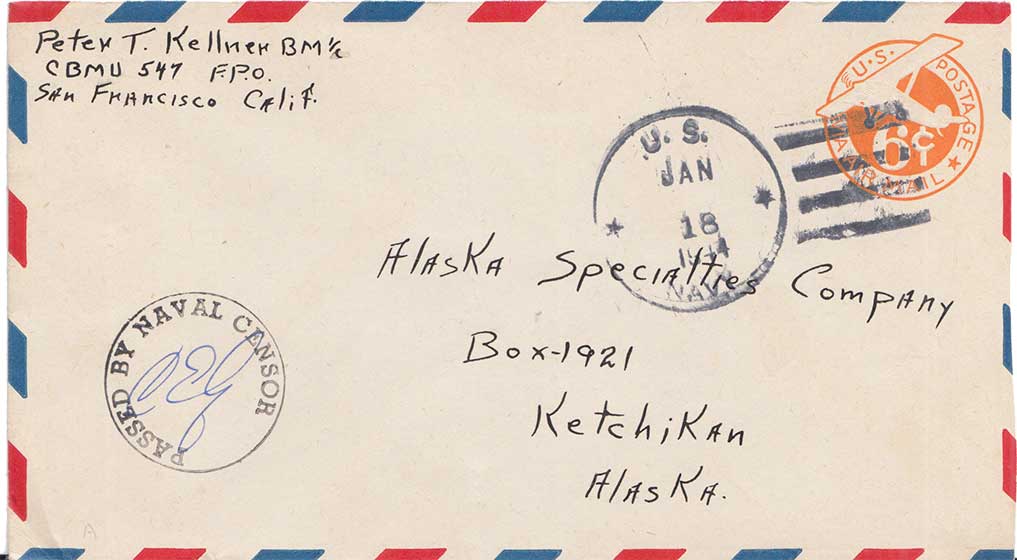 Peter T. Kellner BM1/c
CBMU 547 F.P.O.
San Francisco Calif.
U.S. POSTAGE
6¢
VIA AIR MAIL
U. S.
JAN
18
1944
NAVY
Alaska Specialties Company
Box-1921
Ketchikan
Alaska.
PASSED BY NAVAL CENSOR
A